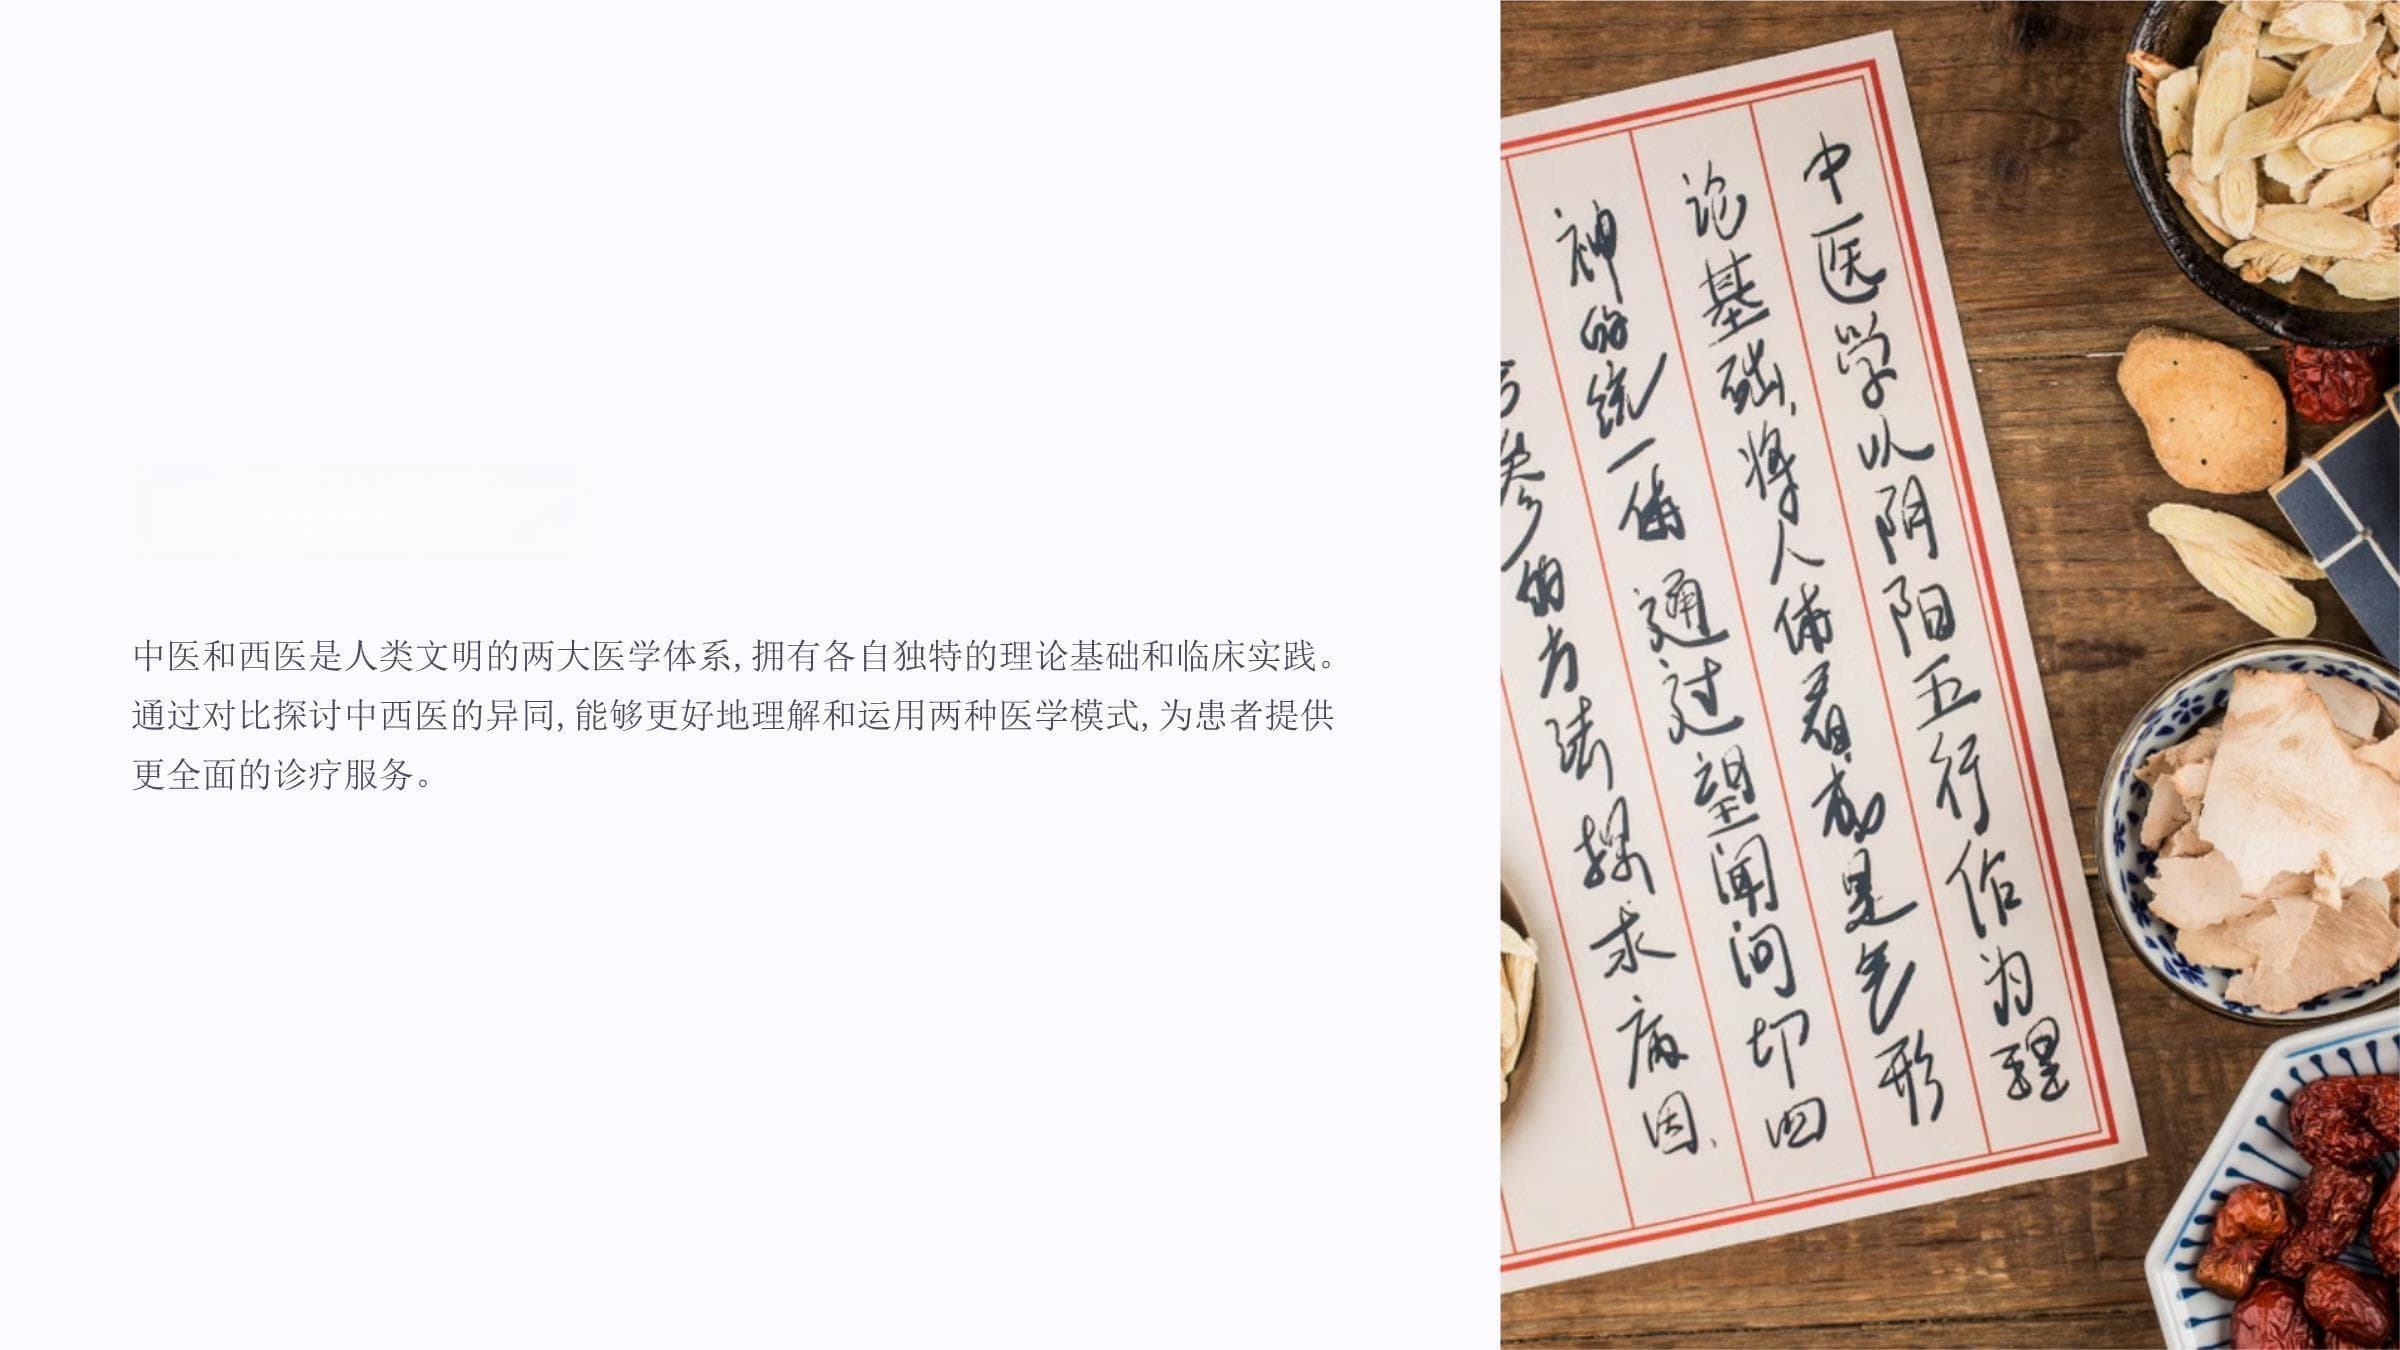 中医和西医是人类文明的两大医学体系,拥有各自独特的理论基础和临床实践。
通过对比探讨中西医的异同,能够更好地理解和运用两种医学模式,为患者提供
更全面的诊疗服务。
中医学以阴阳五行作为理
论基础,将人体看成是气形
神的统一体 通过望闻问切四
参的方法探求病因、